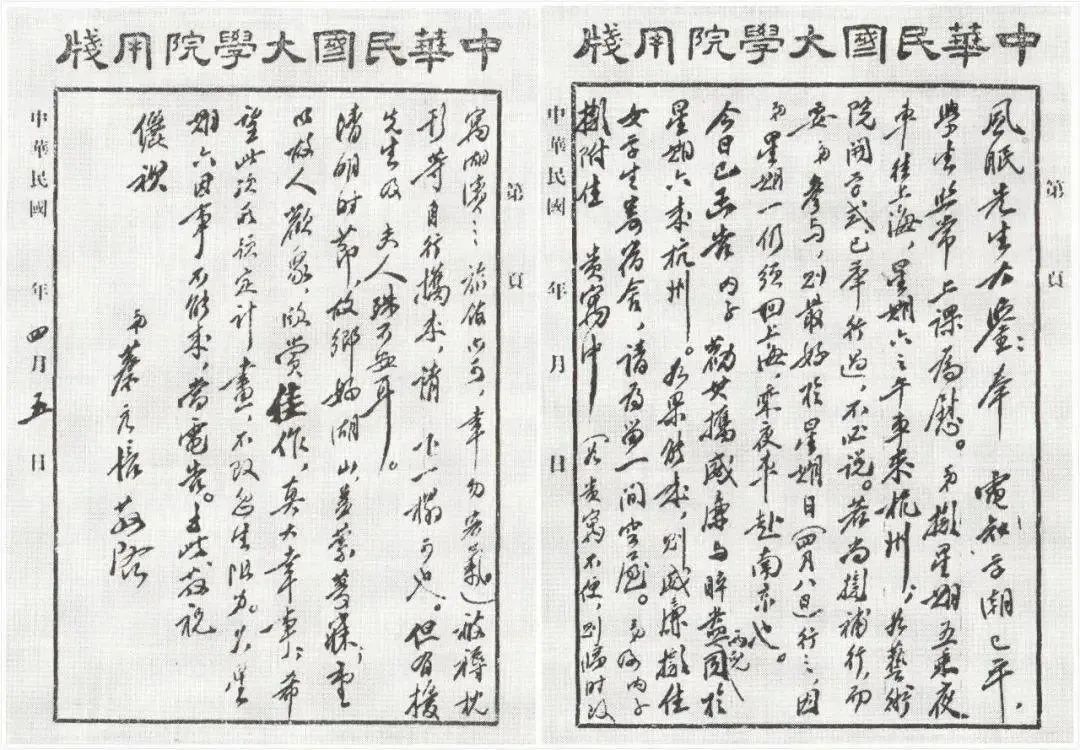 中華民國大學院用牋
第 頁
風眠先生大鑒:奉 電知學潮已平,
學生照常上課爲慰。弟擬星期五乘夜
車往上海,星期六上午車來杭州,如藝術
院開學式已舉行過,不必說。若尚擬補行,而
要弟參與,則最好於星期日(四月八日)行之,因
弟星期一仍須回上海,乘夜車赴南京也。
今日已函告內子勸其攜威廉與睟盎兩兒同於
星期六來杭州。如果能來,則威廉擬住
女學生寄宿舍,請爲留一間空屋。弟及內子
擬附住 貴寓中(若貴寓不便,則臨時改
中華民國 年 月 日
中華民國大學院用牋
第 頁
寓湖濱之旅館亦可,幸勿客氣)被褥枕
等自行攜來,請 一榻可也。但有擾
先生及 夫人殊不安耳。
清明時節,故鄉好湖山,縈夢寐,重
以故人歡聚,欣賞佳作,真大幸事,希
望此次預定計畫,不致發生阻力。如星
期六因事不能來,當電告。專此敬祝
儷祺
弟蔡元培敬啓
中華民國 年四月五日